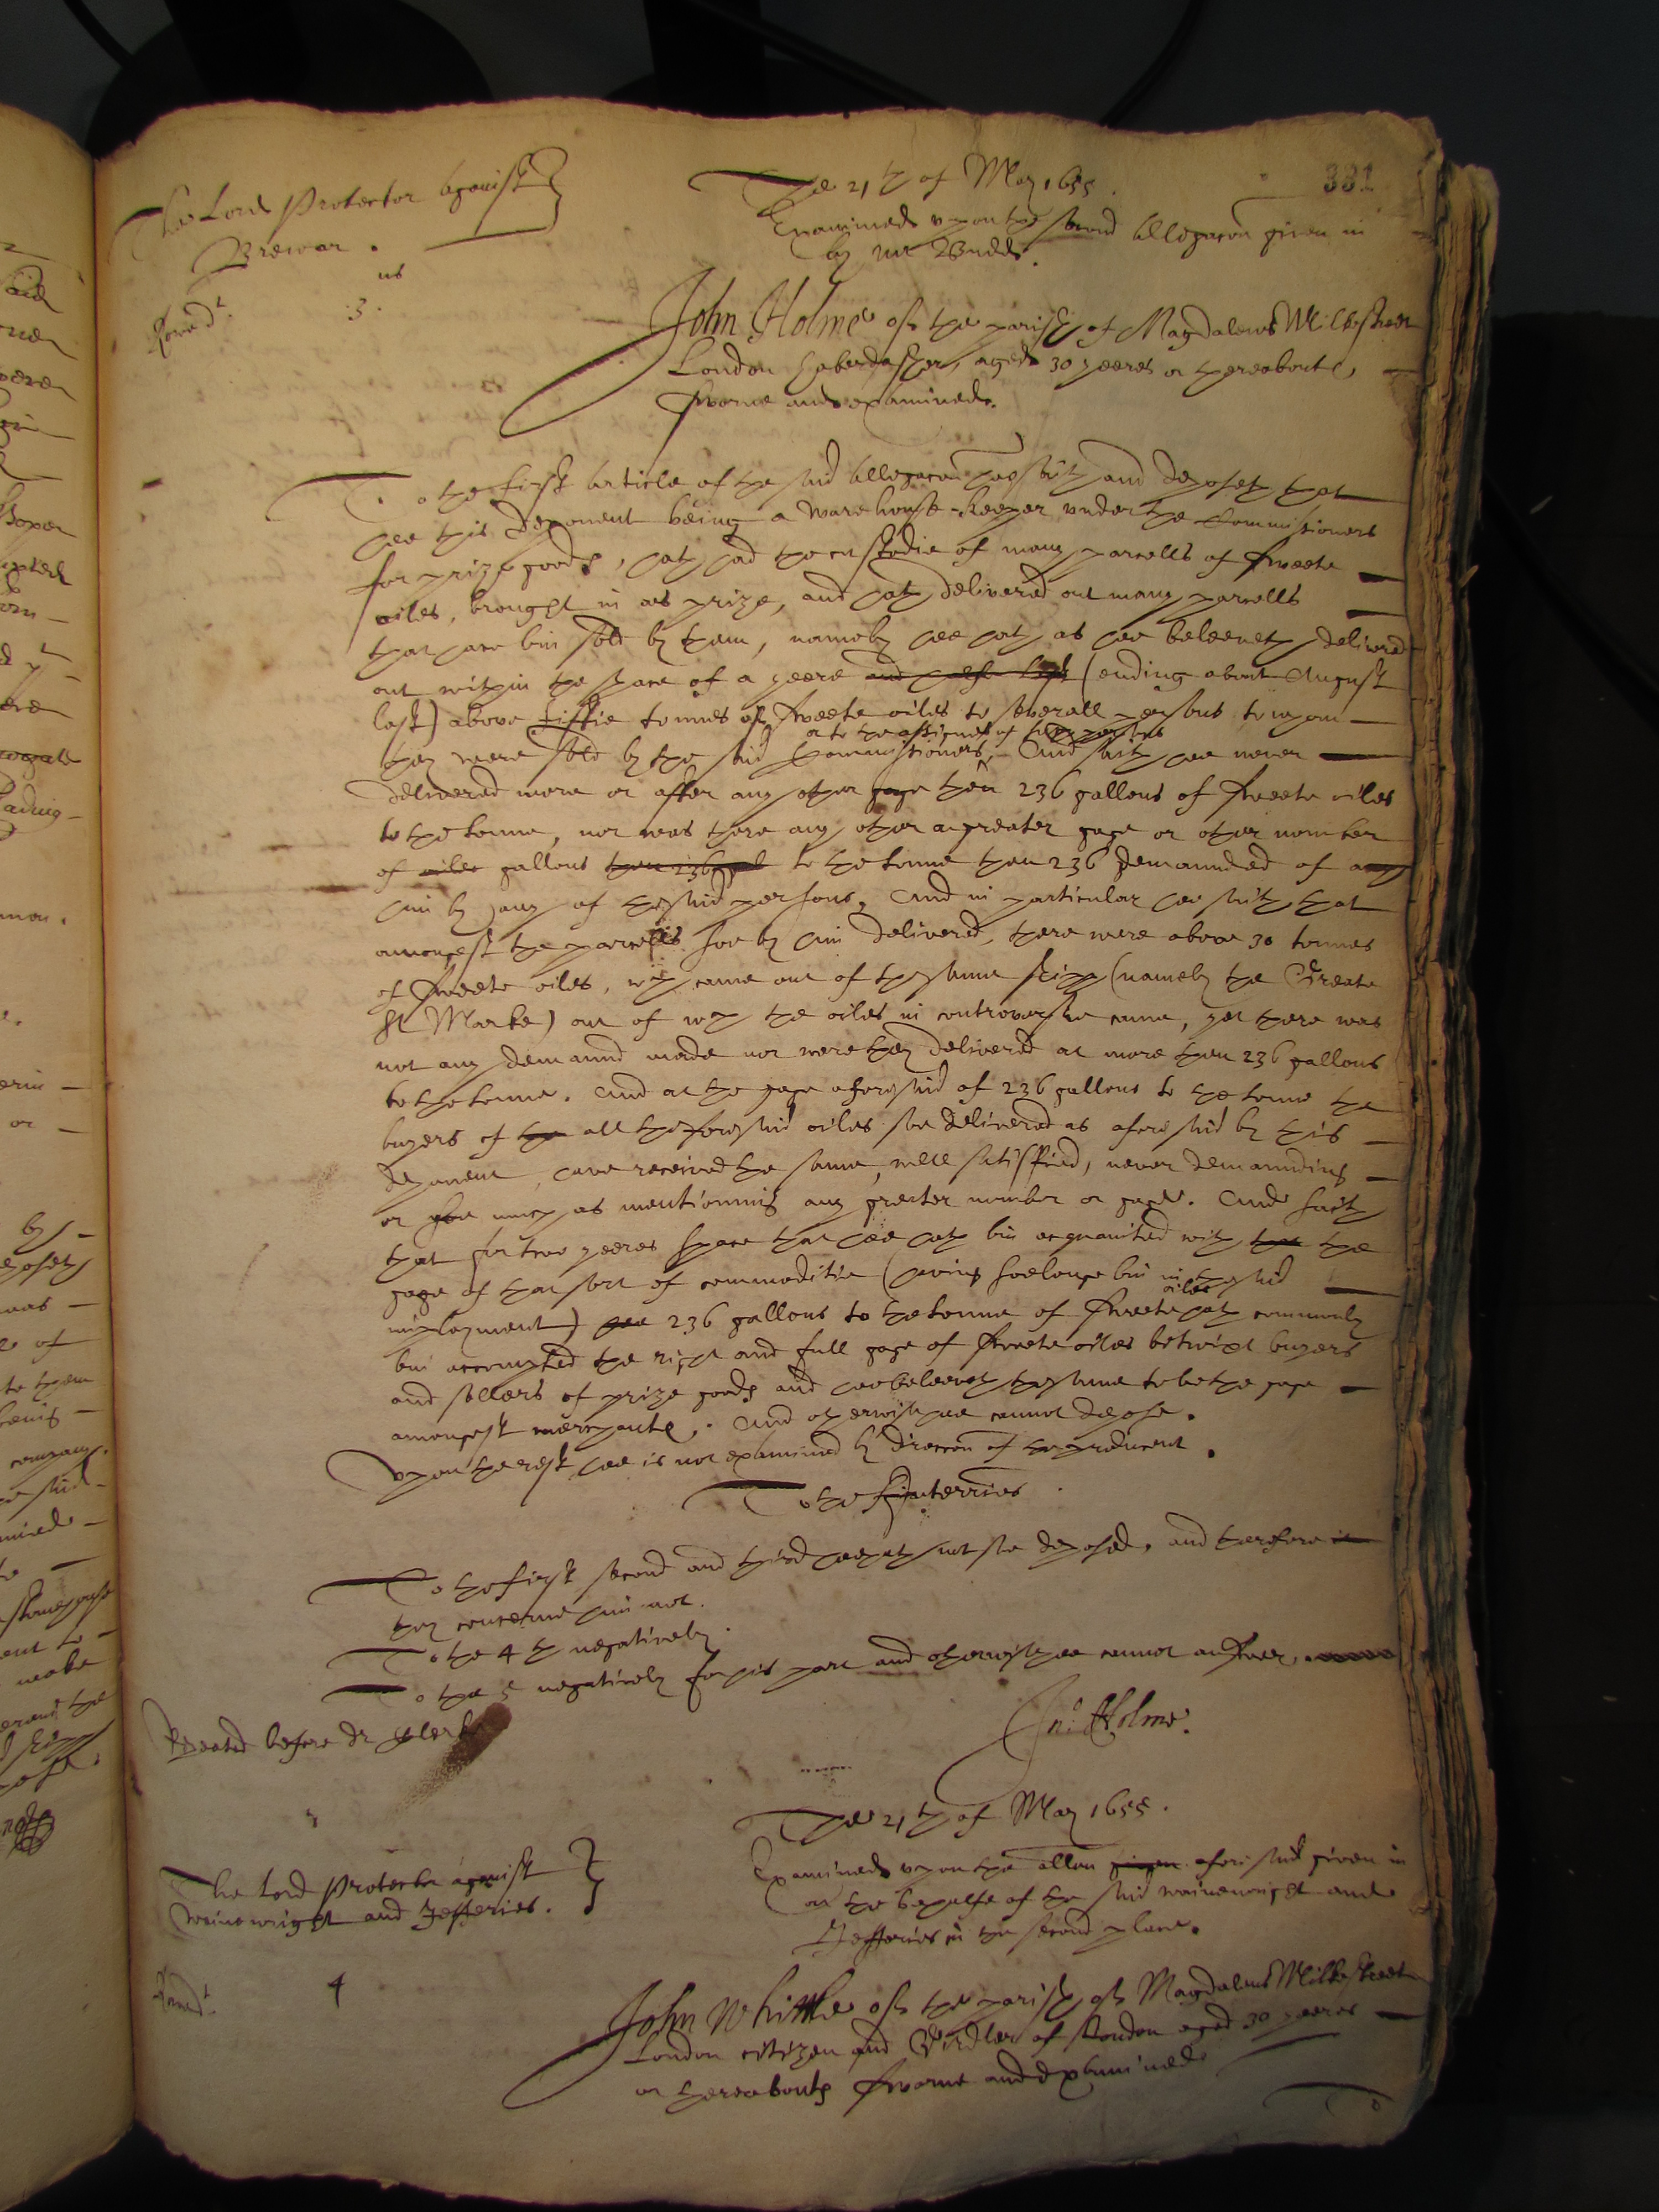 381
The Lord Protector against
Brewer.
The 21th of May 1655.
Examined upon the second allegacon given in
by mr Budd.
us
3.
John Holme of the parish of Magdalens Milkestreet
London haberdasher, aged 30 yeeres or thereabouts,
sworne and examined.
To the first article of the said allegacon hee saith and deposeth that
hee this deponent being a warehouse-keeper under the Commissioners
for prize goods, hath had the custodie of many parcells of sweete
oiles, brought in as prize, and hath delivered out many parcells
that have bin sold by them, namely hee hath as hee beleeveth delivered
out within the space of a yeere and halfe last (ending about August
last) above fiftie tonnes of sweete oiles to severall persons to whom
or to the assignes of
they were sold by the said Commissioners, And saith hee never
delivered more or after any other gage then 236 gallons of sweete oiles
to the tonne, nor was there any other a greater gage or other number
of oiles gallons then 236 gal to the tonne then 236 demaunded of any
him by any of the said persons, And in particular hee saith that
amongest the parcells soe by him delivered, there were above 30 tonnes
of sweete oiles, wch came out of the same shipp (namely the Greate
St Marke) out of wch the oiles in controversie came, yet there was
not any demaund made nor were they delivered at more then 236 gallons
to the tonne. And at the gage aforesaid of 236 gallons to the tonne the
buyers of the all the foresaid oiles soe delivered as aforesaid by this
deponent, have received the same, well satisffied, never demaunding
or soe much as mentionning any greater number or gage. And saith
that for two yeeres space that hee hath bin acquainted with that the
gage of that sort of commoditie (having soe longe bin in the said
oiles
imployment) hee 236 gallons to the tonne of sweete hath commonly
bin accompted the right and full gage of sweete oiles betwixt buyers
and sellers of prize goods and hee beleeveth the same to be the gage
amongest merchants. And otherwise hee cannot depose.
Upon the rest hee is not examined by direccon of the producent.
To the Interries.
To the first second and third hee hath not soe deposed, and therefore it
they concerne him not.
To the 4th negatively.
To the 5 negatively for his part and otherwise hee cannot answer.
Repeated before dr Clerk
Jn: Holme.
The 21th of May 1655.
The Lord Protector against
Wainewright and Jefferies.
Examined upon the allon given aforesaid given in
on the behalfe of the said Wainewright and
Jefferies in the second place.
4
John Whittle of the parish of Magdalens Milkestreete
London citizen and Girdler of London aged 30 yeeres
or thereabouts sworne and examined